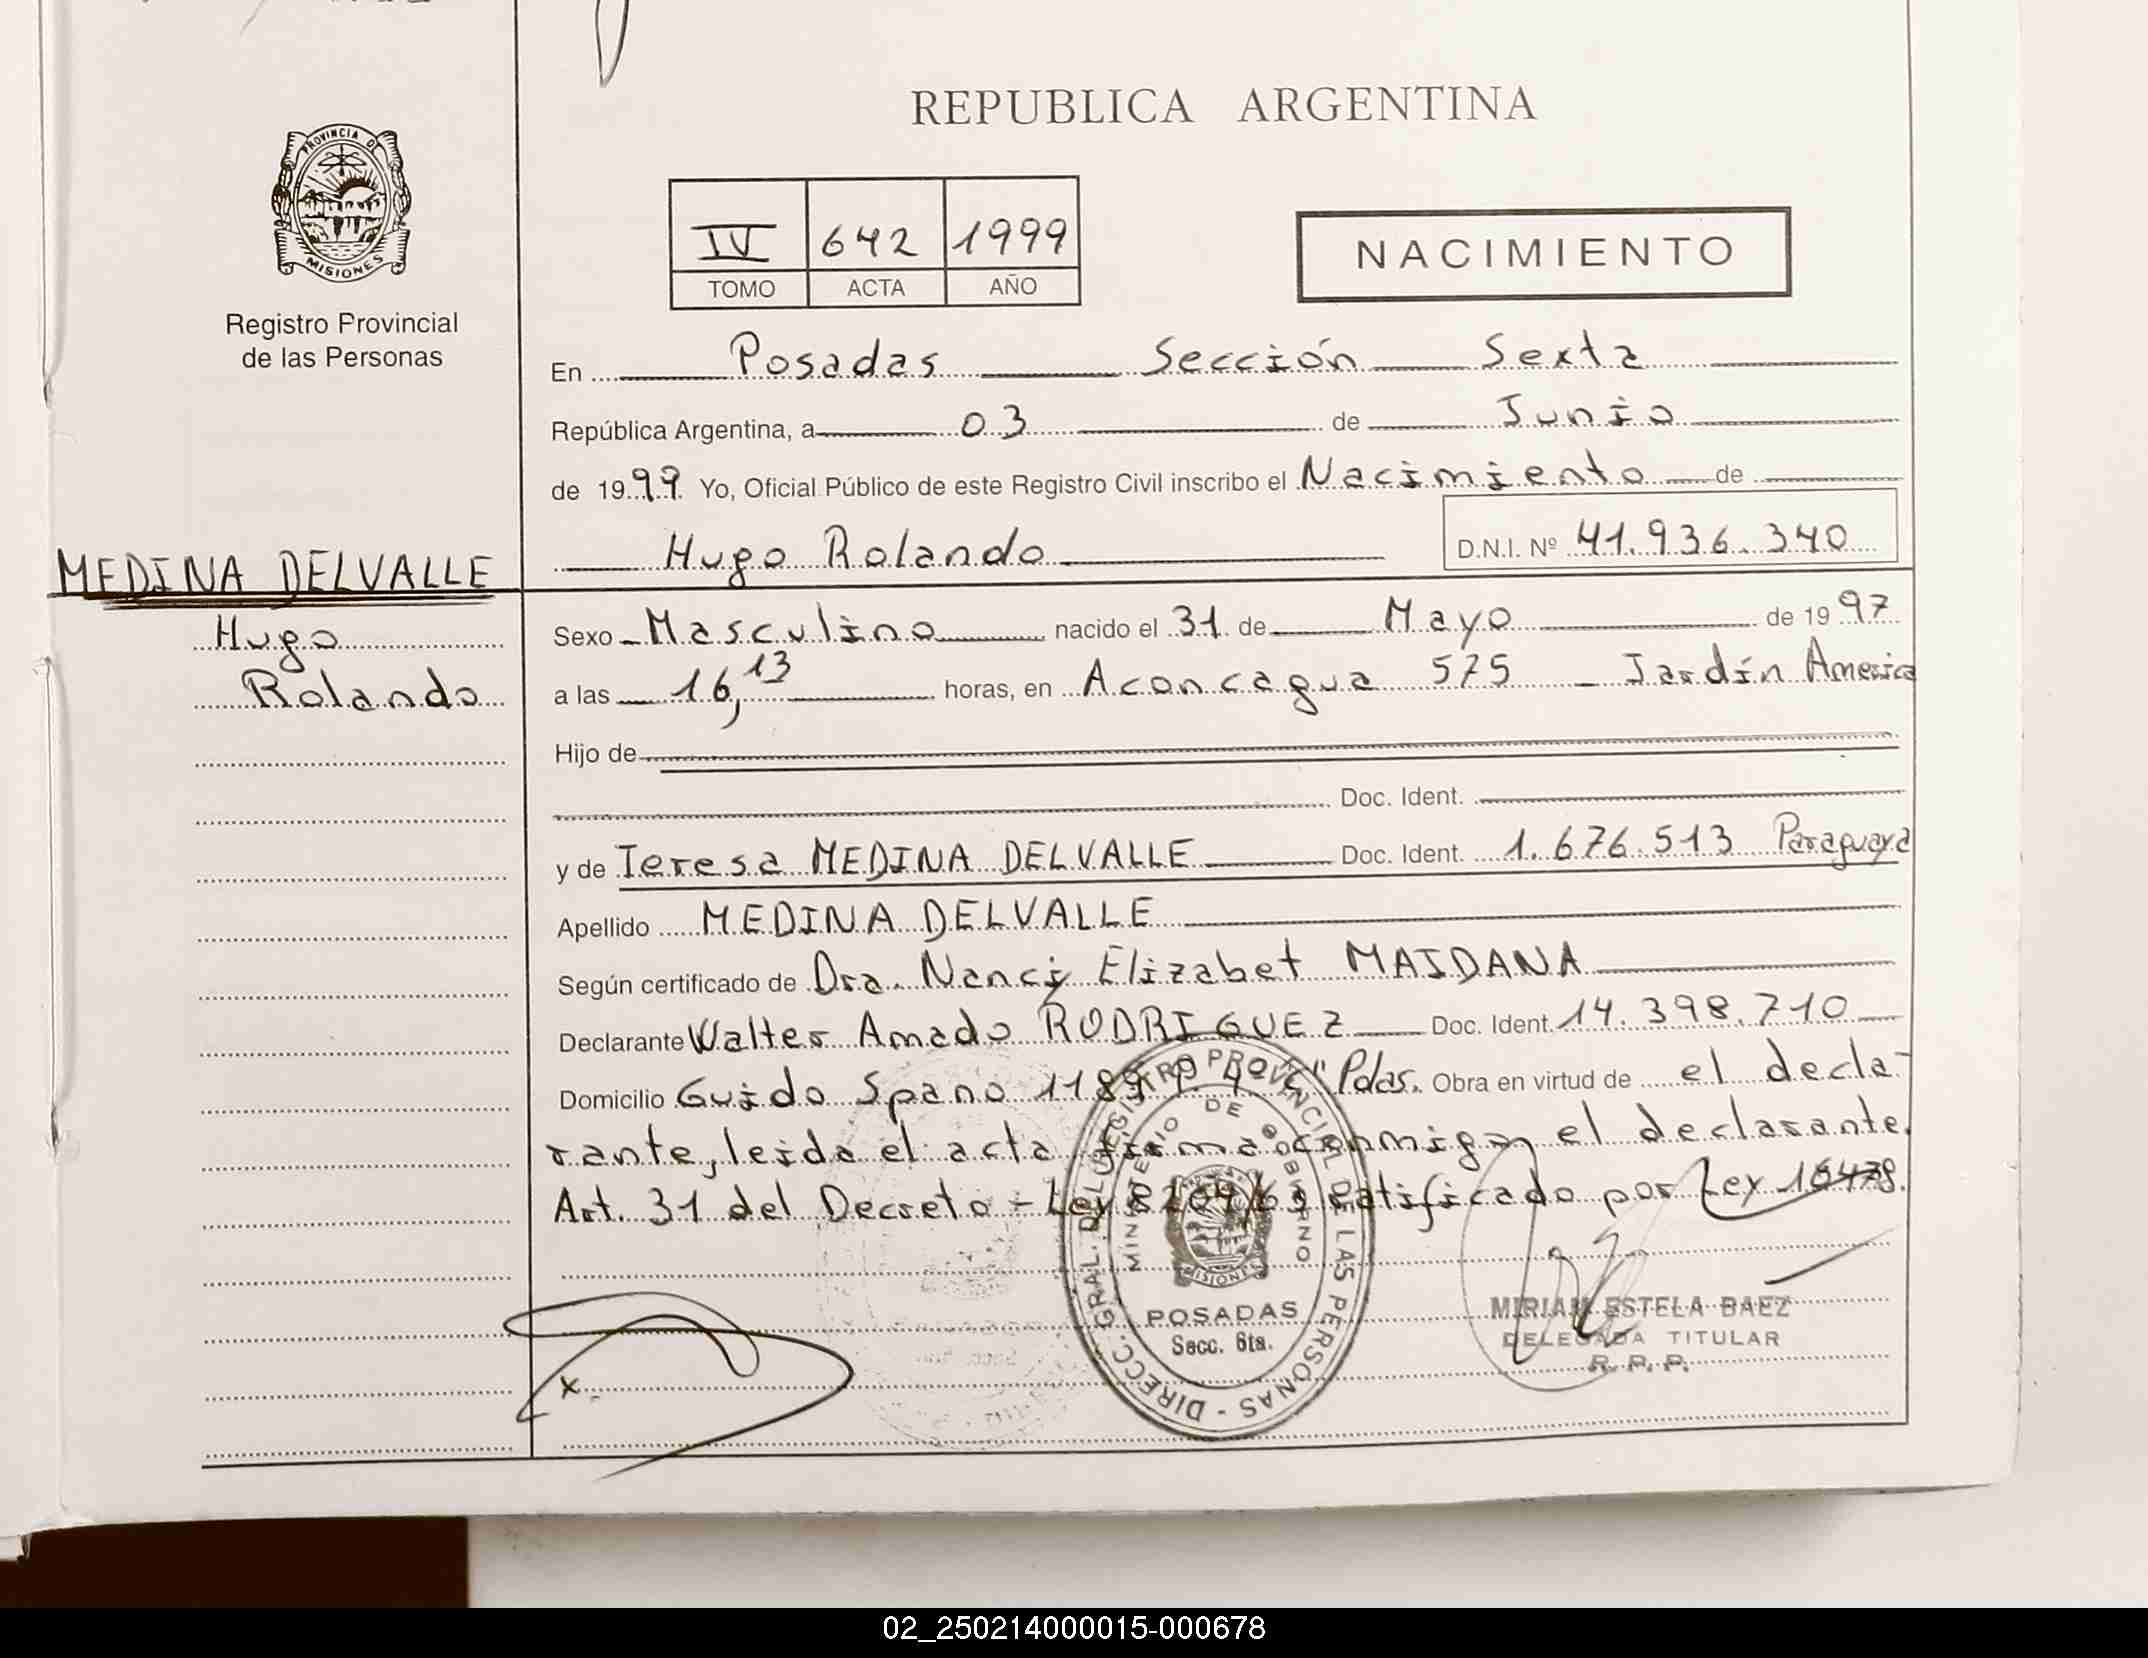 REPUBLICA ARGENTINA
PROVINCIA DE
MISIONES
Registro Provincial
de las Personas
IV 642 1999
TOMO ACTA AÑO
NACIMIENTO
En Posadas Sección Sexta
República Argentina, a 03 de Junio
de 1999 Yo, Oficial Público de este Registro Civil inscribo el Nacimiento de
Hugo Rolando D.N.I. Nº 41.936.340
MEDINA DELVALLE
Hugo
Rolando
Sexo Masculino nacido el 31 de Mayo de 1997
a las 16,13 horas, en Aconcagua 575 - Jardín America
Hijo de
Doc. Ident.
y de Teresa MEDINA DELVALLE Doc. Ident. 1.676.513 Paraguaya
Apellido MEDINA DELVALLE
Según certificado de Dra. Nancy Elizabet MAIDANA
Declarante Walter Amado RODRIGUEZ Doc. Ident. 14.398.710
Domicilio Guido Spano 1189 Pdas. Obra en virtud de el decla-
rante, leida el acta firma conmigo el declarante.
Art. 31 del Decreto - Ley 8204/63 ratificado por Ley 16478.
DIRECC. GRAL. DEL REGISTRO PROVINCIAL DE LAS PERSONAS -
MINISTERIO DE GOBIERNO
MISIONES
POSADAS
Secc. 6ta.
MIRIAM ESTELA BAEZ
DELEGADA TITULAR
R. P. P.
x
02_250214000015-000678